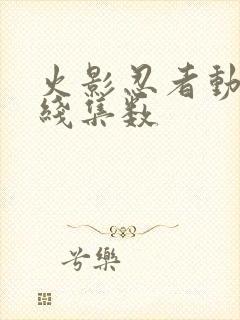 火影忍者動
綫集数
兮樂